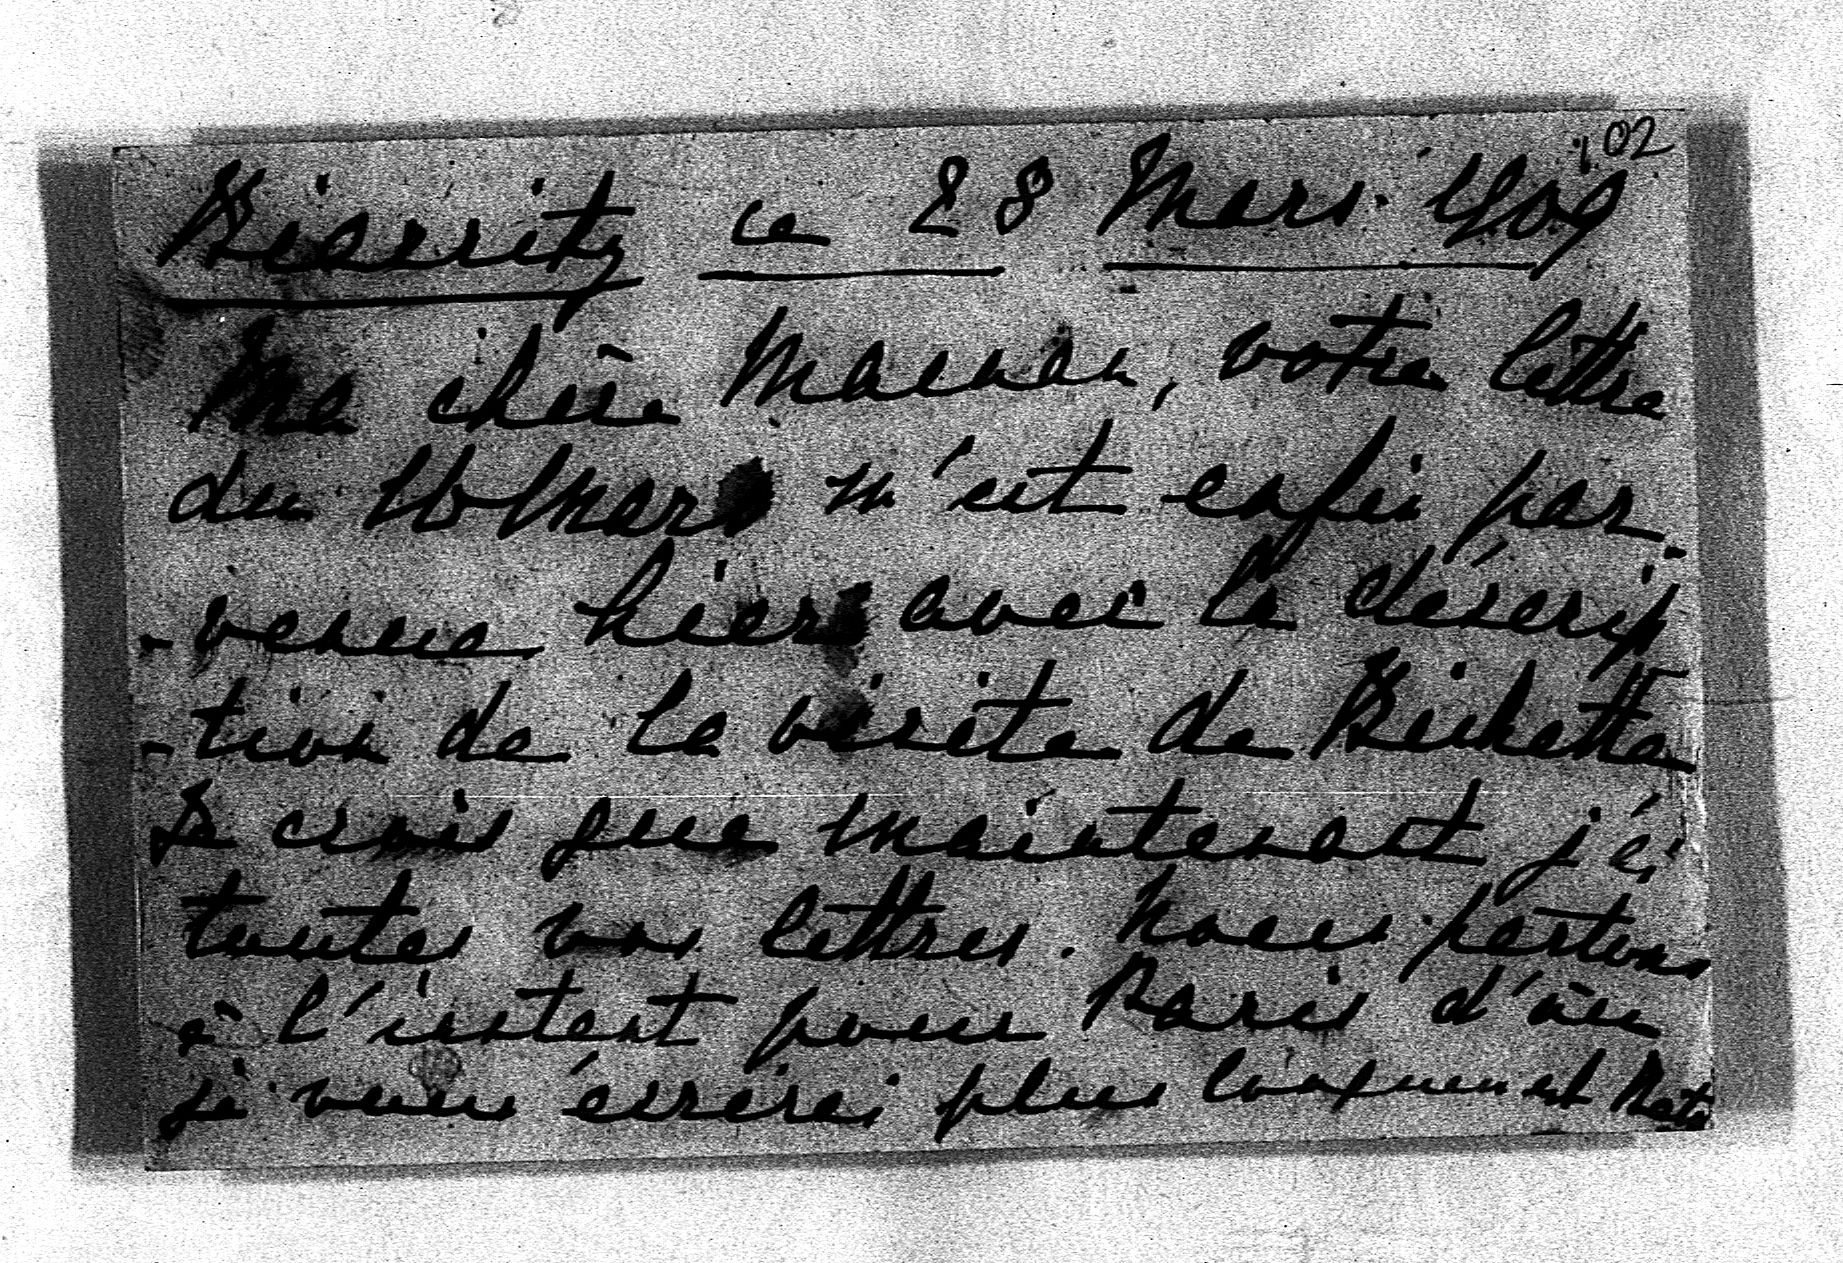 102
Biarritz ce 28 Mars. 1909
Ma chère Maman, votre lettre
du 16 Mars m'est enfin par-
-venue hier avec la déscrip
-tion de la visite de Bichette
Je crois que maintenant j'ai
toutes vos lettres. Nous partons
à l'instant pour Paris d'où
je vous écrirai plus longuement